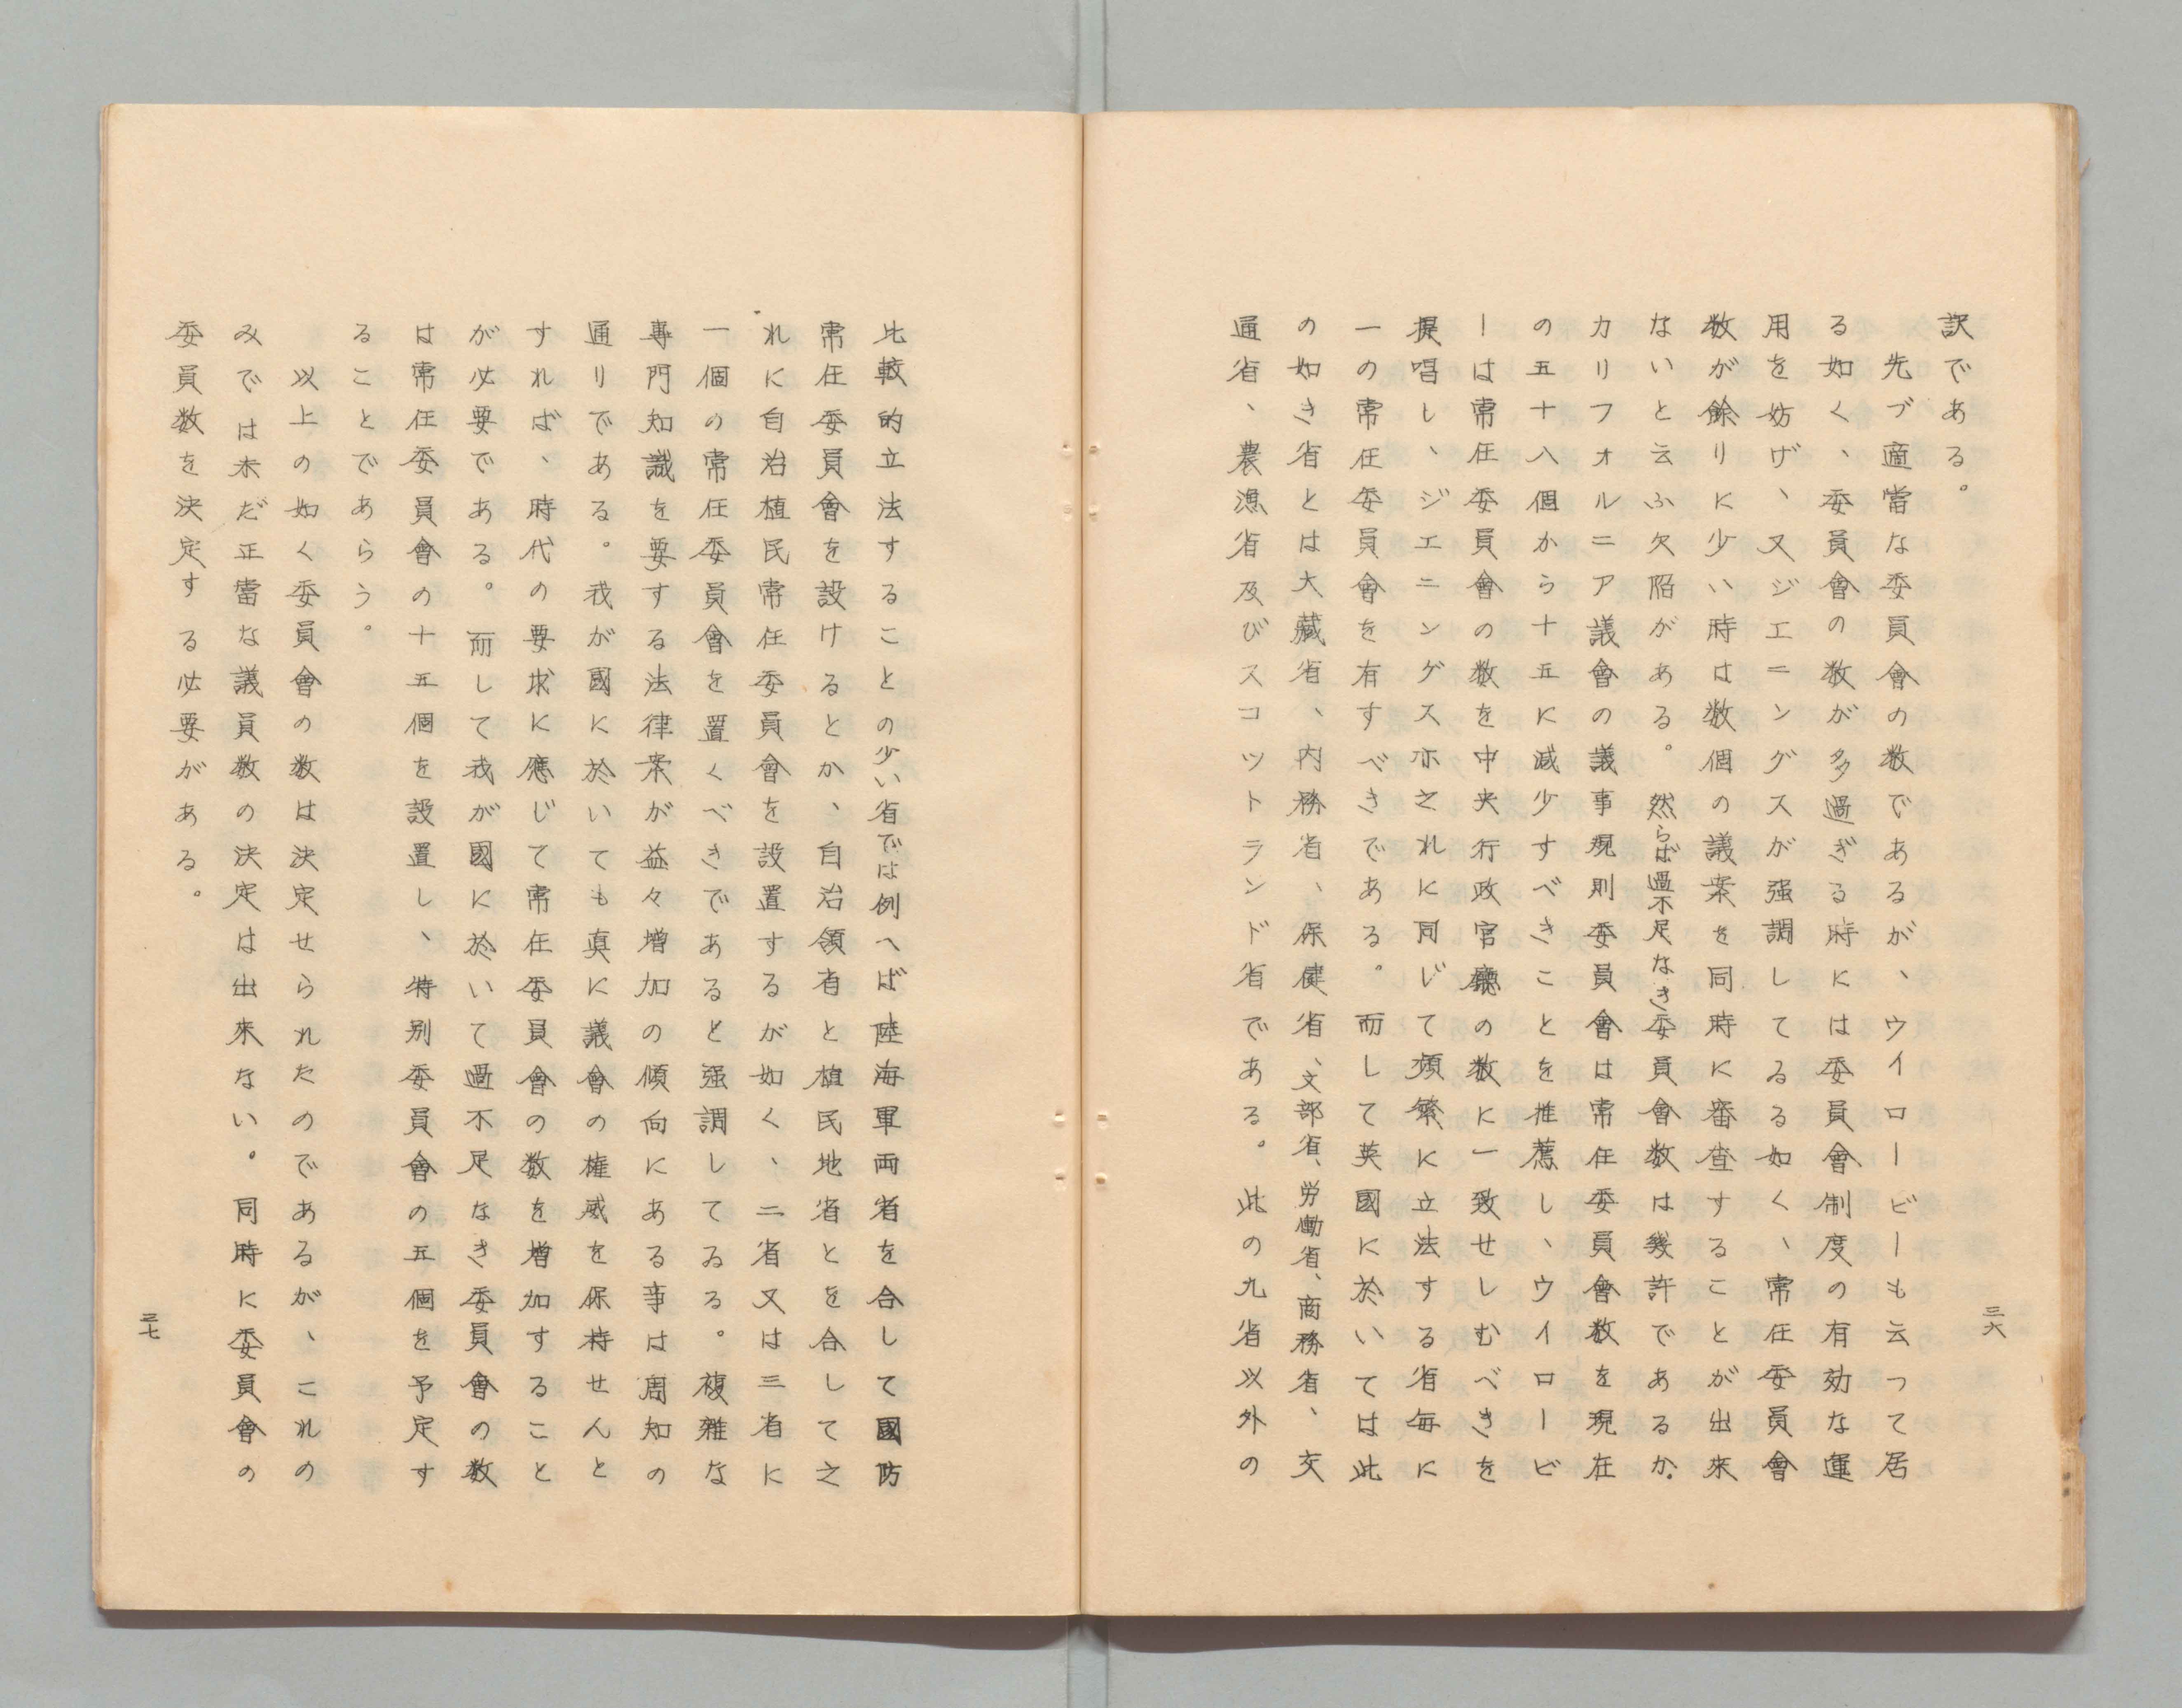 訳である。
先づ適當な委員會の数であるが、ウイロービーも云って居
る如く、委員會の数が多過ぎる時には委員會制度の有効な運
用を妨げ、又ジエニングスが强調してるる如く、常任委員會
数が餘りに少い時は数個の議案を同時に審査することが出来
ないと云ふ欠陥がある。然らば過不足なき委員會数は幾許であるか。
カリフォルニア議會の議事規則委員會は常任委員會数を現在
の五十八個から十五に減少すべきことを推薦し、ウイロービ
ーは常任委員會の数を中央行政官廳の数に一致せしむべきを
提唱し、ジエニングス亦之れに同じて頻繁に立法する省毎に
一の常任委員會を有すべきである。而して英國に於いては此
の如き省とは大藏省、内務省、保健省、文部省、労働省、商務省、交
通省、農漁省及びスコットランド省である。此の九省以外の
三六
比較的立法することの少い省では例へば陸海軍両省を合して國防
常任委員會を設けるとか、自治領省と植民地省とを合して之
れに自治植民常任委員會を設置するが如く、二省又は三省に
一個の常任委員會を置くべきであると强調してゐる。複雑な
専門知識を要する法律案が益々増加の傾向にある事は周知の
通りである。我が國に於いても真に議會の権威を保持せんと
すれば、時代の要求に應じて常任委員會の数を増加すること
が必要である。而して我が國に於いて過不足なき委員會の数
は常任委員會の十五個を設置し、特別委員會の五個を予定す
ることであらう。
以上の如く委員會の数は決定せられたのであるが、これの
みでは未だ正當な議員数の決定は出来ない。同時に委員會の
委員数を決定する必要がある。
三七